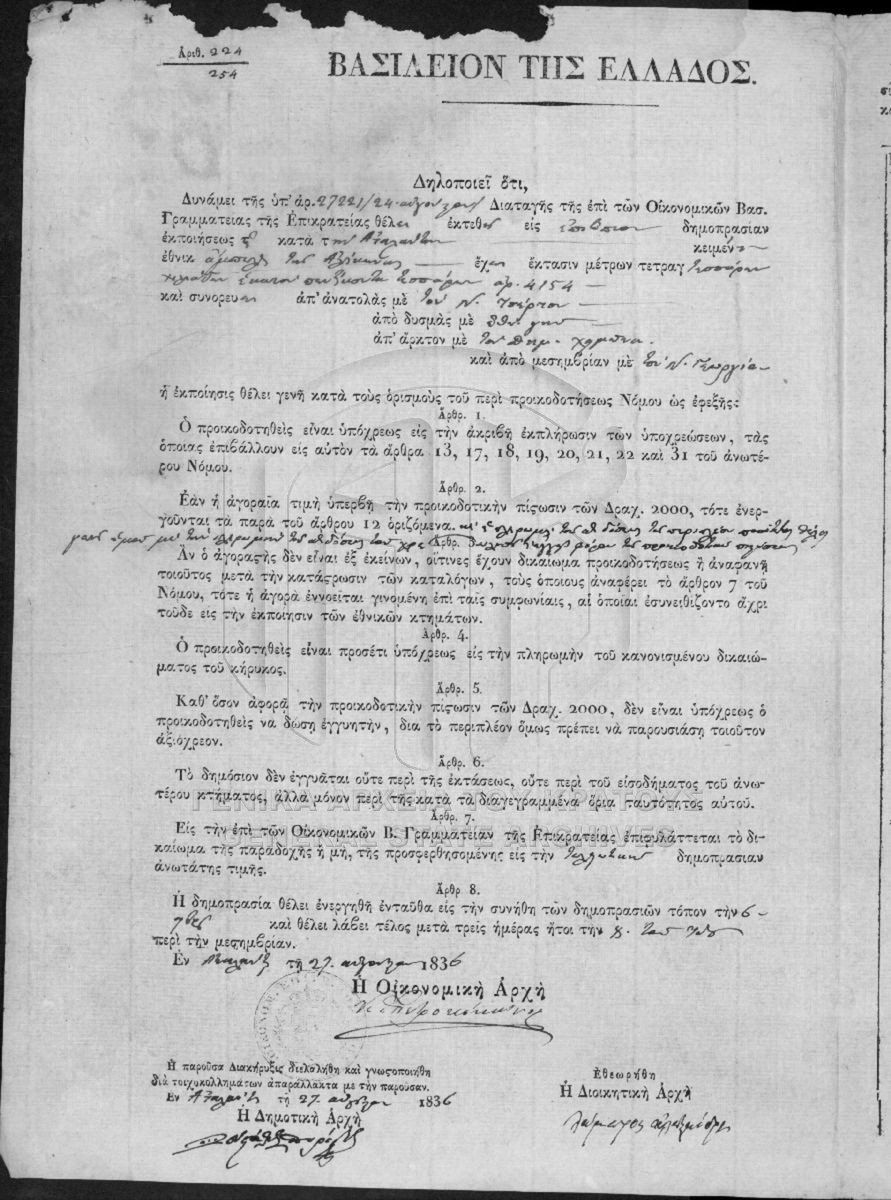 Ἀριθ. 224
254
ΒΑΣΙΛΕΙΟΝ ΤΗΣ ΕΛΛΑΔΟΣ.
Δηλοποιεῖ ὅτι,
Δυνάμει τῆς ὑπ' ἀρ. 27221/24 αὐγούστου Διαταγῆς τῆς ἐπὶ τῶν Οἰκονομικῶν Βασ.
Γραμματείας τῆς Ἐπικρατείας θέλει ἐκτεθῆ εἰς δημοπρασίαν
ἐκποιήσεως κατὰ τὴν Ἀταλάντην κειμέν
ἐθνικ ἔχει ἔκτασιν μέτρων τετραγ
ἀρ. 4154
καὶ συνορευει ἀπ' ἀνατολὰς μὲ τοῦ Ν.
ἀπὸ δυσμὰς μὲ
ἀπ' ἄρκτον μὲ τοῦ Δημ.
καὶ ἀπὸ μεσημβρίαν μὲ τοῦ Ν.
ἡ ἐκποίησις θέλει γενῆ κατὰ τοὺς ὁρισμοὺς τοῦ περὶ προικοδοτήσεως Νόμου ὡς ἐφεξῆς:
Ἄρθρ. 1.
Ὁ προικοδοτηθεὶς εἶναι ὑπόχρεως εἰς τὴν ἀκριβῆ ἐκπλήρωσιν τῶν ὑποχρεώσεων, τὰς
ὁποίας ἐπιβάλλουν εἰς αὐτὸν τὰ ἄρθρα 13, 17, 18, 19, 20, 21, 22 καὶ 31 τοῦ ἀνωτέ-
ρου Νόμου.
Ἄρθρ. 2.
Ἐὰν ἡ ἀγοραία τιμὴ ὑπερβῇ τὴν προικοδοτικὴν πίστωσιν τῶν Δραχ. 2000, τότε ἐνερ-
γοῦνται τὰ παρὰ τοῦ ἄρθρου 12 ὁριζόμενα.
Ἄρθρ.
Ἂν ὁ ἀγοραστὴς δὲν εἶναι ἐξ ἐκείνων, οἵτινες ἔχουν δικαίωμα προικοδοτήσεως ἢ ἀναφανῇ
τοιοῦτος μετὰ τὴν κατάστρωσιν τῶν καταλόγων, τοὺς ὁποίους ἀναφέρει τὸ ἄρθρον 7 τοῦ
Νόμου, τότε ἡ ἀγορὰ ἐννοεῖται γινομένη ἐπὶ ταῖς συμφωνίαις, αἱ ὁποῖαι ἐσυνειθίζοντο ἄχρι
τοῦδε εἰς τὴν ἐκποίησιν τῶν ἐθνικῶν κτημάτων.
Ἄρθρ. 4.
Ὁ προικοδοτηθεὶς εἶναι προσέτι ὑπόχρεως εἰς τὴν πληρωμὴν τοῦ κανονισμένου δικαιώ-
ματος τοῦ κήρυκος.
Ἄρθρ. 5.
Καθ' ὅσον ἀφορᾷ τὴν προικοδοτικὴν πίστωσιν τῶν Δραχ. 2000, δὲν εἶναι ὑπόχρεως ὁ
προικοδοτηθεὶς νὰ δώσῃ ἐγγυητὴν, δια τὸ περιπλέον ὅμως πρέπει νὰ παρουσιάσῃ τοιοῦτον
ἀξιόχρεον.
Ἄρθρ. 6.
Τὸ δημόσιον δὲν ἐγγυᾶται οὔτε περὶ τῆς ἐκτάσεως, οὔτε περὶ τοῦ εἰσοδήματος τοῦ ἀνω-
τέρου κτήματος, ἀλλὰ μόνον περὶ τῆς κατὰ τὰ διαγεγραμμένα ὅρια ταυτότητος αὐτοῦ.
Ἄρθρ. 7.
Εἰς τὴν ἐπὶ τῶν Οἰκονομικῶν Β. Γραμματείαν τῆς Ἐπικρατείας ἐπιφυλάττεται τὸ δι-
καίωμα τῆς παραδοχῆς ἢ μὴ, τῆς προσφερθησομένης εἰς τὴν δημοπρασιαν
ἀνωτάτης τιμῆς.
Ἄρθρ 8.
Ἡ δημοπρασία θέλει ἐνεργηθῆ ἐνταῦθα εἰς τὴν συνήθη τῶν δημοπρασιῶν τόπον τὴν 6
καὶ θέλει λάβει τέλος μετὰ τρεῖς ἡμέρας ἤτοι τὴν 8. τοῦ
περὶ τὴν μεσημβρίαν.
Ἐν τῇ 27. αὐγούστου 1836
Ἡ Οἰκονομικὴ Ἀρχὴ
Ἡ παροῦσα Διακήρυξις διελαλήθη καὶ γνωστοποιήθη
διὰ τοιχοκολλημάτων ἀπαράλλακτα με τὴν παροῦσαν.
Ἐν τῇ 27. αὐγούστου 1836
Ἡ Δημοτικὴ Ἀρχὴ
Ἐθεωρήθη
Ἡ Διοικητικὴ Ἀρχὴ